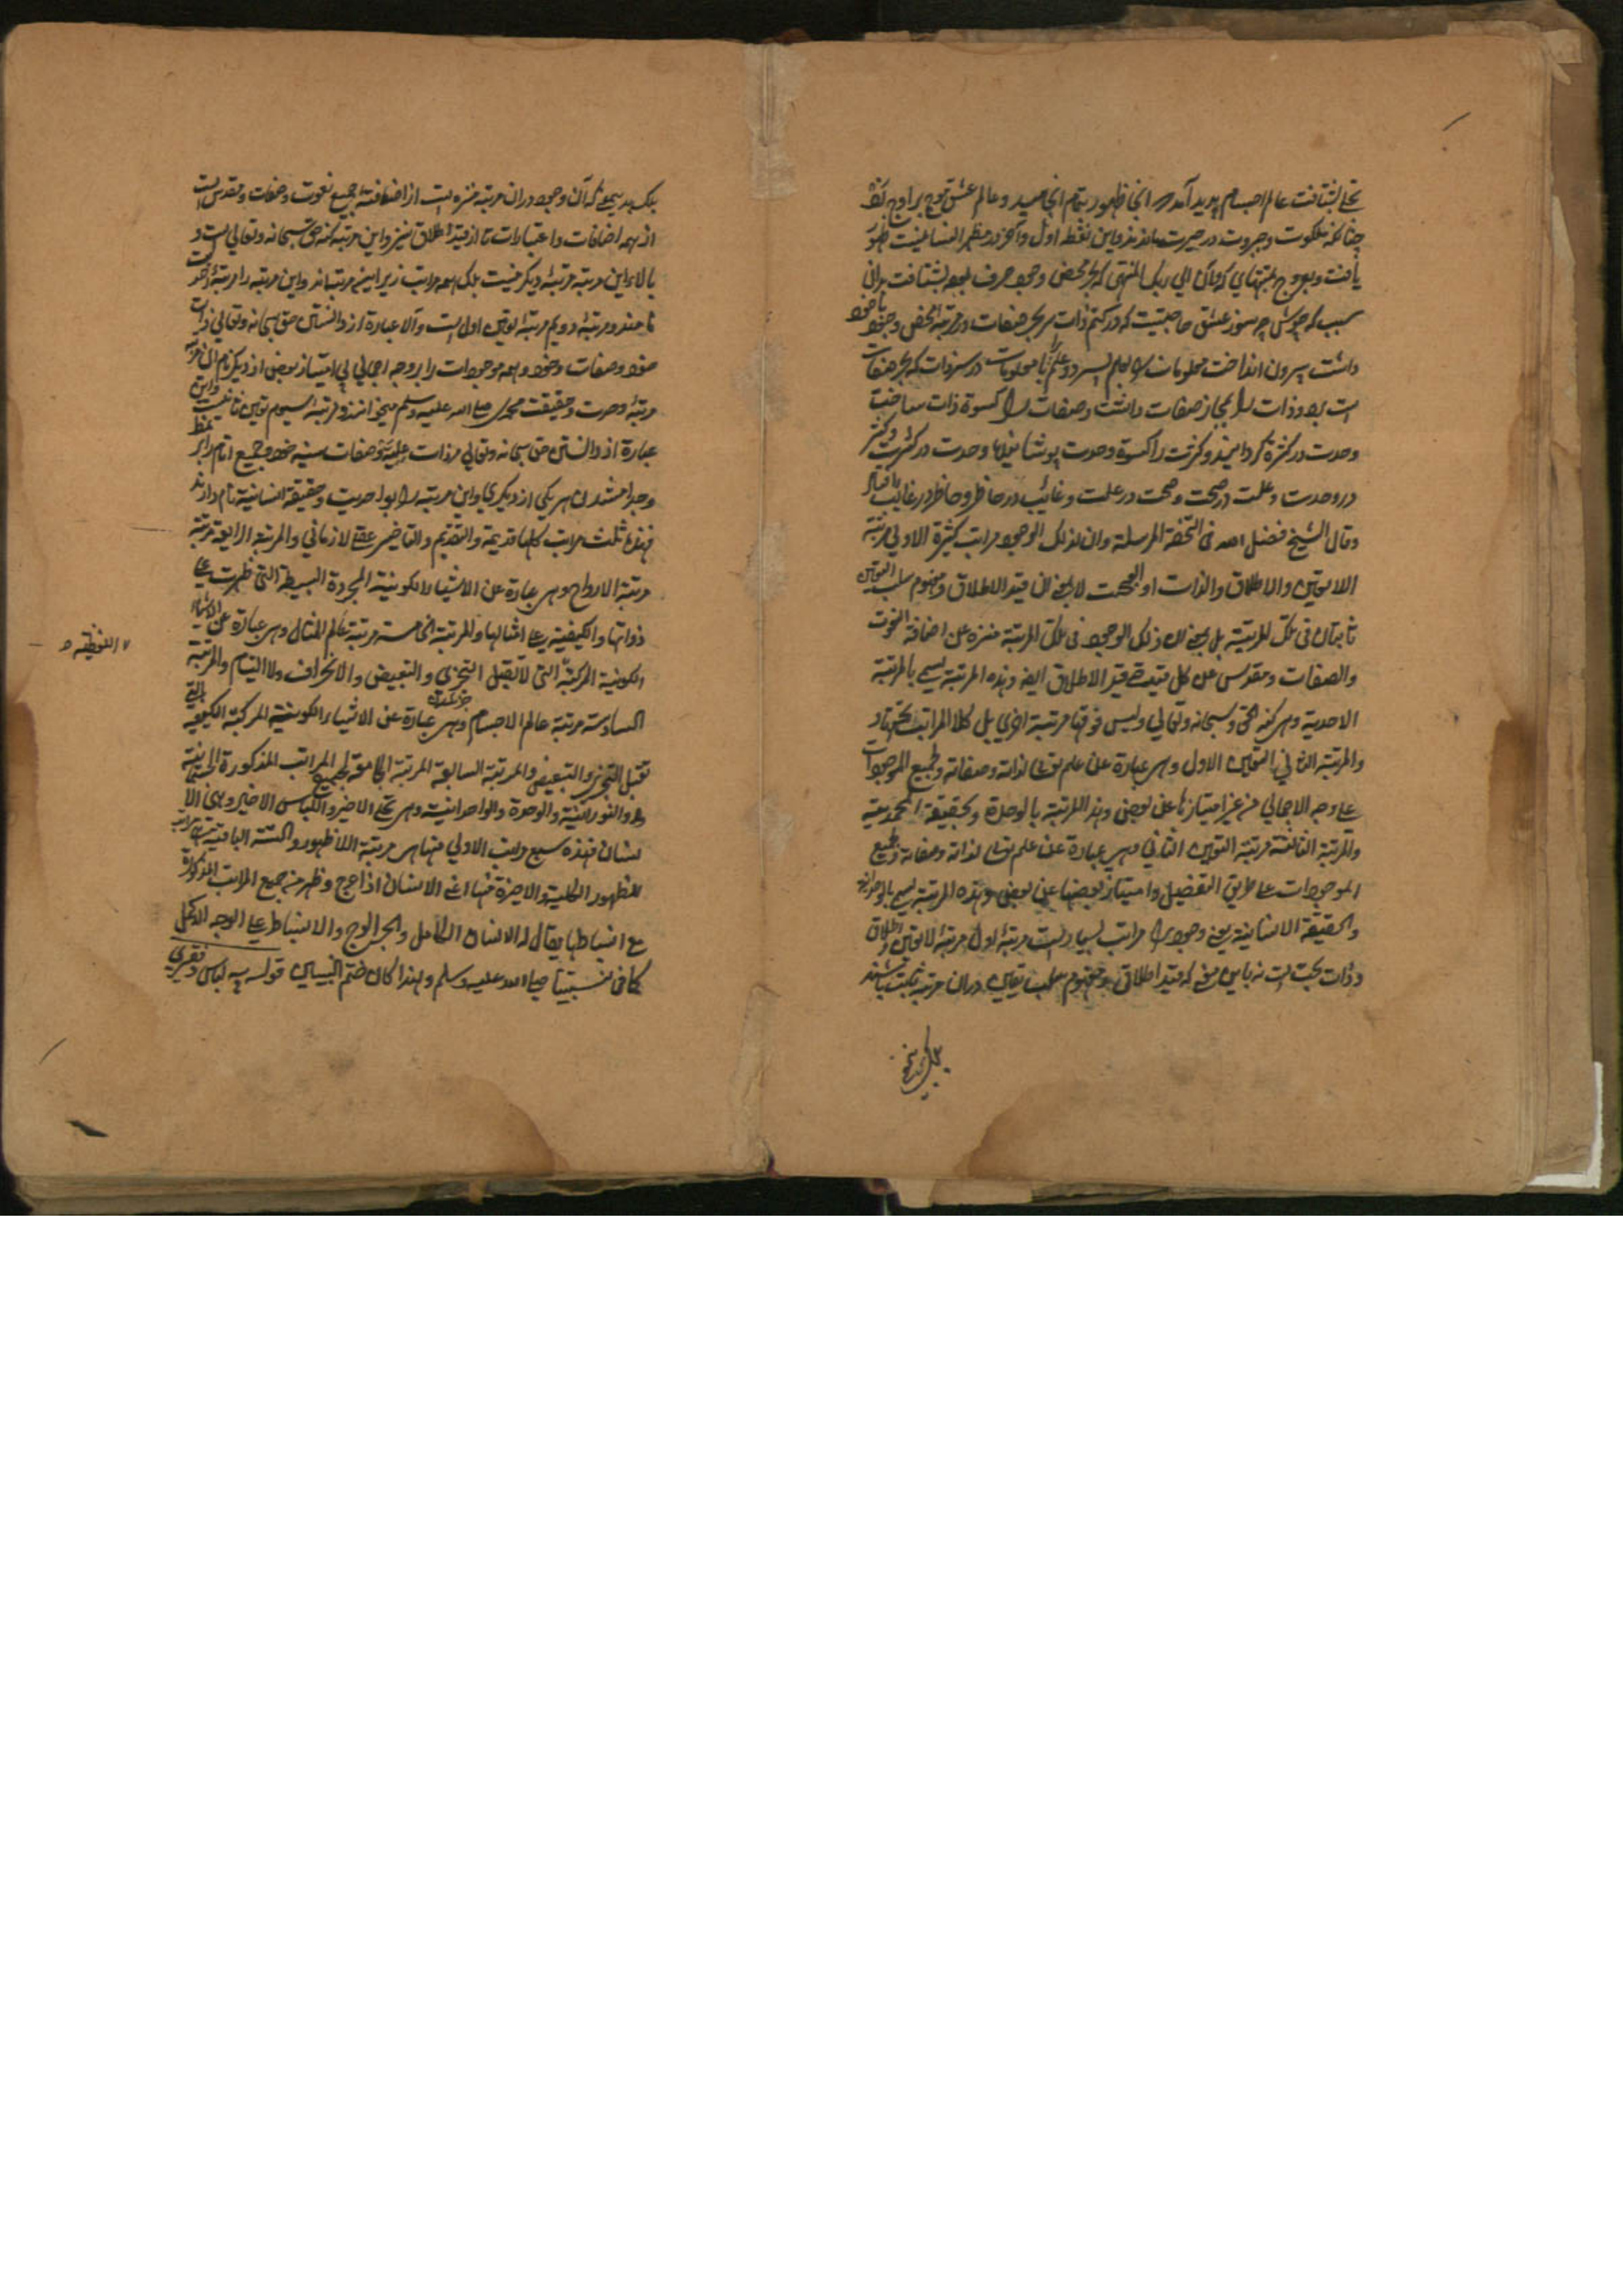 تجلی شتافت عالم اجسام پدید آمد انجا ظهور بتمام انجامید و عالم عشق موج بر اوج
چنانکه ملکوت و جبروت در حیرت ماندند و این نقطه اول و آخر در مظهر انسانیت ظهور
یافت و بعروج بمنتهای که وان الی ربک المنتهی که بحر محض وجود صرف بود بشتافت بدانی
سبب که جوش چه سوز عشق خاصیتیست که در کتم ذات بحر صفات در مرتبه المحض وجود باخود
داشت بیرون انداخت معلومات را بعلم سپرد و علم با معلومات در سر ذات که بحر صفات
است برد و ذات را بمجاز صفات داشت و صفات را کسوة ذات ساخت
وحدت در کثرة گردانید و کثرت را کسوة وحدت پوشانید وحدت در کثرت و کثرت
در وحدت و علت در صحت و صحت در علت و غائب در حاضر و حاضر در غائب
وقال الشیخ فضل الله فی التحفة المرسلة وان لذلک الوجود مراتب کثیرة الاولی مرتبة
اللاتعین والاطلاق والذات البحت لا بمعنی ان قید الاطلاق ومفهوم سلب التعین
ثابتان فی تلک المرتبة بل بمعنی ان ذلک الوجود فی تلک المرتبة منزه عن اضافة النعوت
والصفات ومقدس عن کل قید حتی قید الاطلاق ایضا وهذه المرتبة یسمی بالمرتبة
الاحدیة وهی کنه الحق سبحانه وتعالی ولیس فوقها مرتبة اخری بل کل المراتب تحتها
والمرتبة الثانی التعین الاول وهی عبارة عن علم تعالی لذاته وصفاته ولجمیع الموجودات
علی وجه الاجمالی من غیر امتیاز بعضها عن بعض وهذا المرتبة بالوحدة والحقیقة المحمدیة
والمرتبة الثالثة مرتبة التعین الثانی وهی عبارة عن علم تعالی لذاته وصفاته ولجمیع
الموجودات علی طریق التفصیل وامتیاز بعضها عن بعض وهذه المرتبة یسمی بالواحدیة
والحقیقة الانسانیة یعنی وجود را مراتب بسیارست مرتبهٔ اول مرتبهٔ لاتعین واطلاق
و ذات بحت است نه باین معنی که قید اطلاق و مفهوم سلب تعین دران مرتبه ثابت باشند
بلکه بدین معنی که آن وجود دران مرتبه منزه است از اضافت جمیع نعوت و صفات و مقدس است
از همه اضافات و اعتبارات تا از قید اطلاق نیز و این مرتبه کنه حق سبحانه و تعالی است و
بالاء این مرتبه مرتبهٔ دیگر نیست بلکه همه مراتب زیر این مرتبه اند و این مرتبه را مرتبهٔ احدیت
نامند و مرتبهٔ دویم مرتبهٔ تعین اول است و آن عبارة از دانستن حق سبحانه و تعالی ذات
خود و صفات خود و همه موجودات را بر وجه اجمالی بی امتیاز بعض از دیگر نام این مرتبه
مرتبهٔ وحدت و حقیقت محمدی صلی الله علیه وسلم میخوانند و مرتبهٔ سیوم تعین ثانیست و این
عبارة از دانستن حق سبحانه و تعالی مر ذات علیّه و صفات سنیه خود و جمیع
وجدا شدن هر یکی از دیگری و این مرتبه را بواحدیت و حقیقة انسانیة نام دارند
فهذه ثلث مراتب کلها قدیمة والتقدیم والتاخیر عقلی لا زمانی والمرتبة الرابعة مرتبة
مرتبة الارواح وهی عبارة عن الاشیاء الکونیة المجردة البسیطة التی ظهرت علی
ذواتها والکیفیة علی امثالها والمرتبة الخامسة مرتبة عالم المثال وهی عبارة عن الاشیاء
الکونیة المرکبة التی لا تقبل التجزی والتبعیض والانخراق ولا التیام والمرتبة
السادسة مرتبة عالم الاجسام وهی عبارة عن الاشیاء الکونیة المرکبة الکثیفة التی
تقبل التجزی والتبعیض والمرتبة السابعة المرتبة الجامعة لجمیع المراتب المذکورة الجسمانیة
والنورانیة والوحدة والواحدانیة وهی تجلی الاخیر واللباس الاخیر وهی الا
نسان فهذه سبع مراتب الاولی منها هی مرتبة اللاظهور والستة الباقیة هی مراتب
للظهور الکلیة والاخیرة منها اعنی الانسان اذا عرج وظهر منه جمیع المراتب المذکورة
مع انبساطها یقال له الانسان الکامل والعروج والانبساط علی الوجه الاکمل
کان فی نبینا صلی الله علیه وسلم ولهذا کان ختم النبیین قوله به لباس